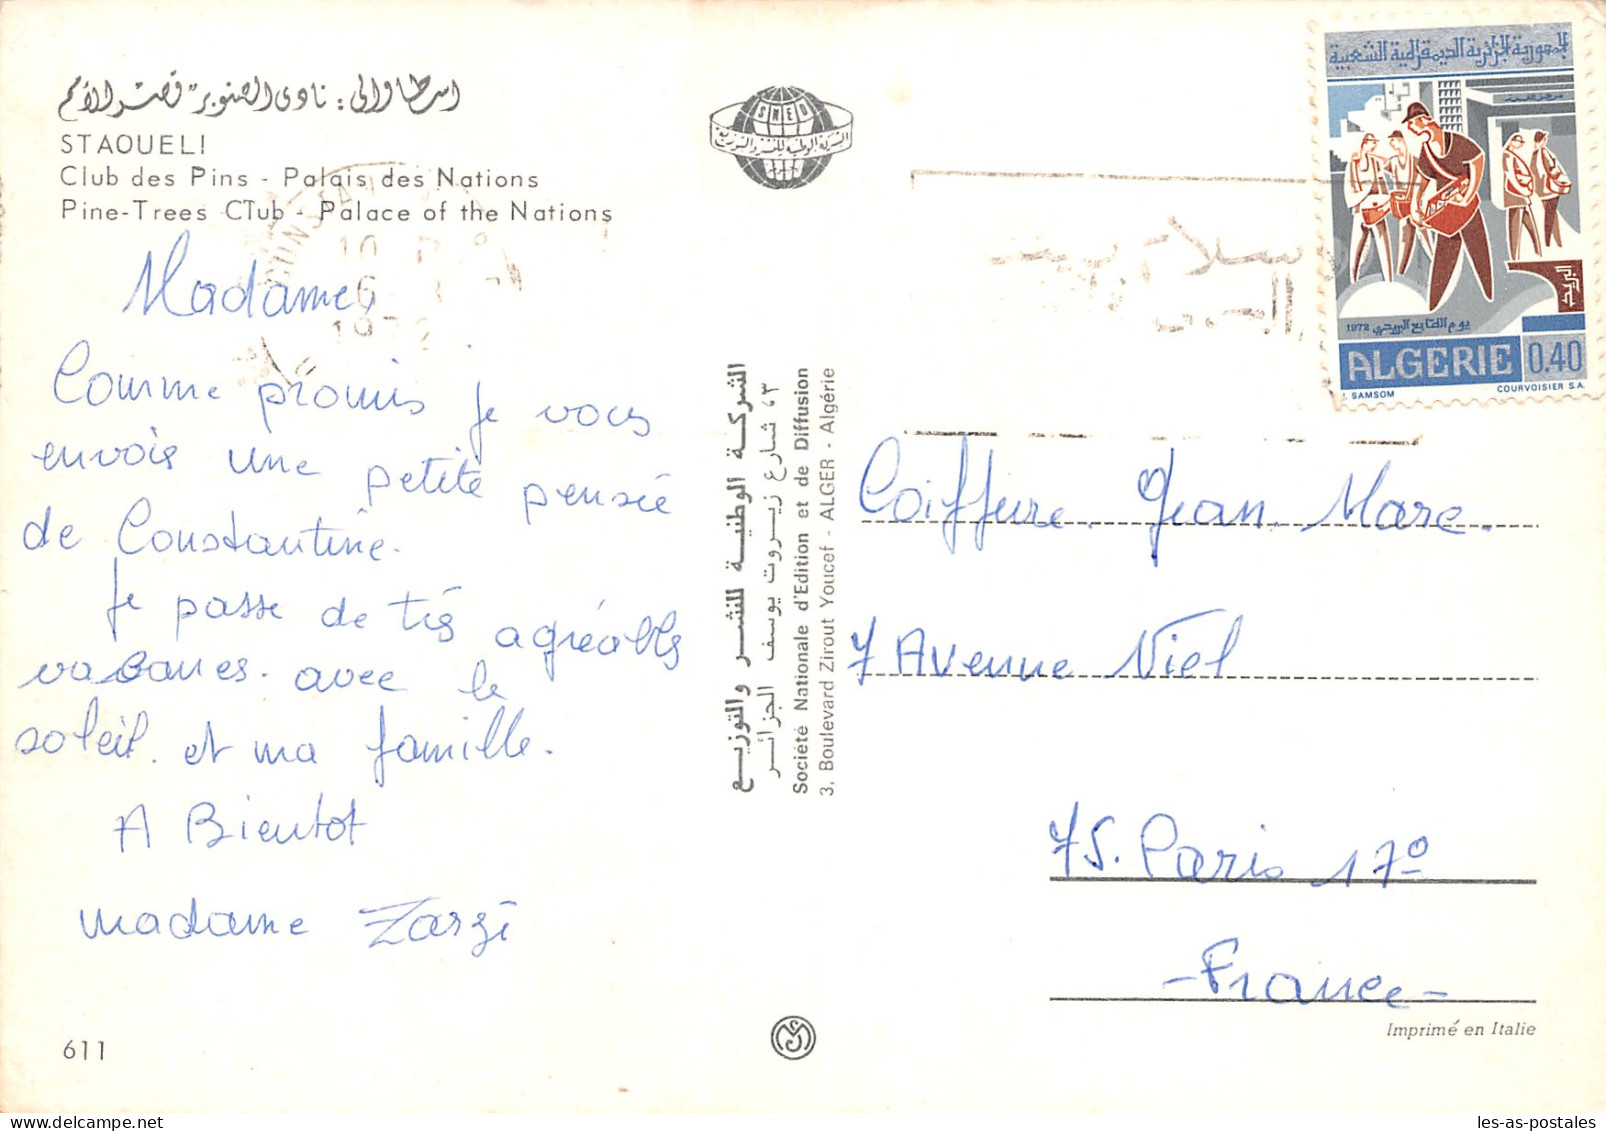 اسطاوالي: نادي الصنوبر "قصر الأمم
STAOUELI
Club des Pins - Palais des Nations
Pine-Trees Club - Palace of the Nations
Madame,
Comme promis je vous
envois une petite pensée
de Constantine.
Je passe de très agréables
vacances. avec le
soleil. et ma famille.
A Bientot
madame Zarzi
611
SNED
الشركة الوطنية للنشر والتوزيع
الشركة الوطنية للنشر والتوزيع
٦٣ شارع زيروت يوسف الجزائر
Société Nationale d'Edition et de Diffusion
3, Boulevard Zirout Youcef - ALGER - Algérie
1972
الجمهورية الجزائرية الديمقراطية الشعبية
يوم الطابع البريدي 1972
ALGERIE 0.40
SAMSOM
COURVOISIER S.A.
Coiffure. Jean. Marc.
7 Avenue Niel
75. Paris 17º
- France -
Imprimé en Italie
les-as-postales